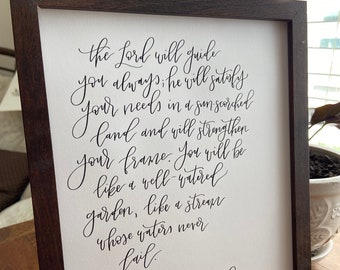 the Lord will guide
you always; he will satisfy
your needs in a sun-scorched
land and will strengthen
your frame. You will be
like a well-watered
garden, like a stream
whose waters never
fail.